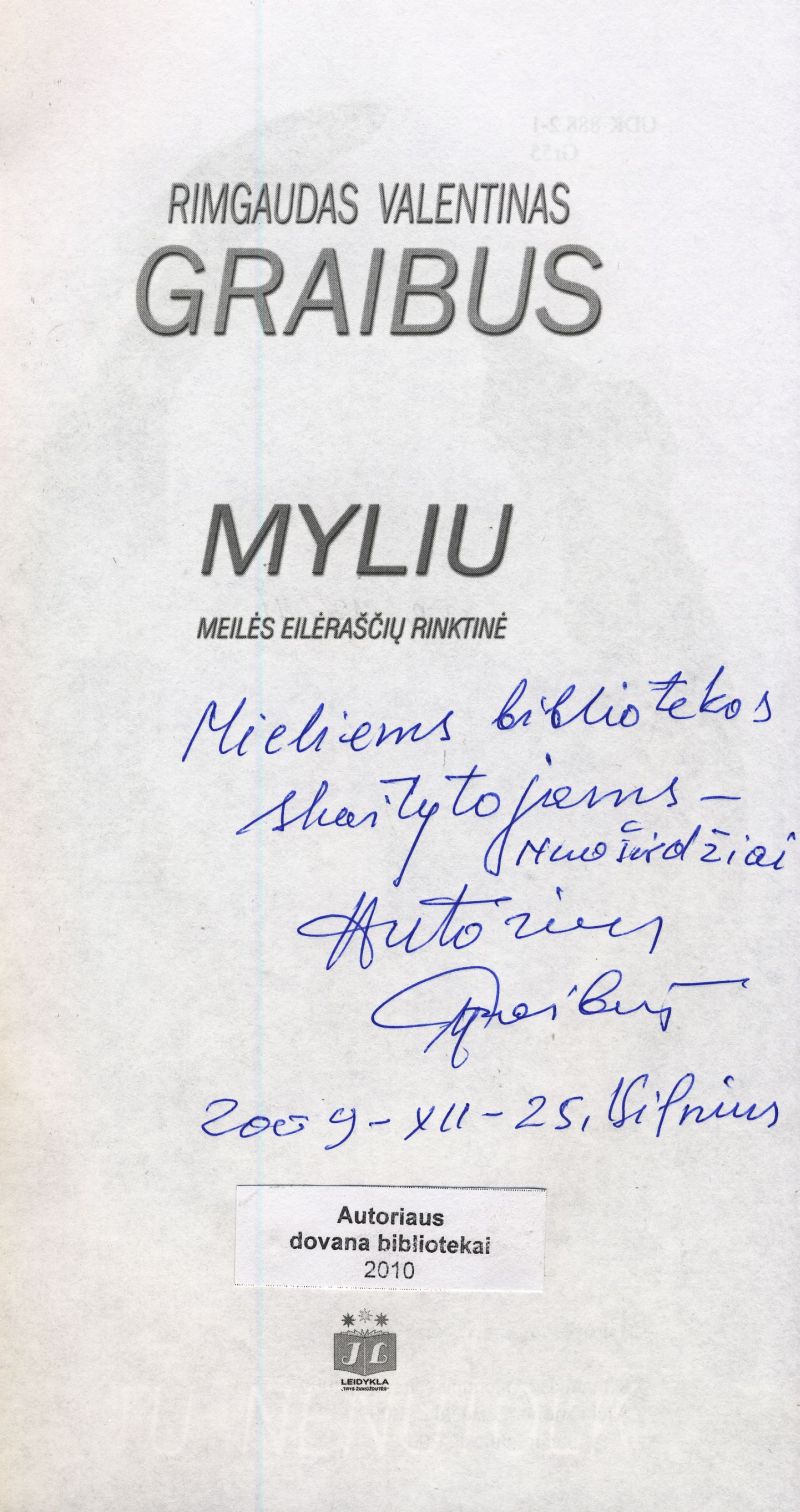 RIMGAUDAS VALENTINAS
GRAIBUS
MYLIU
MEILĖS EILĖRAŠČIŲ RINKTINĖ
Mieliems bibliotekos
skaitytojams –
nuoširdžiai
Autorius
Graibus
2009-XII-25, Vilnius
Autoriaus
dovana bibliotekai
2010
JL
LEIDYKLA
„TRYS ŽVAIGŽDUTĖS“